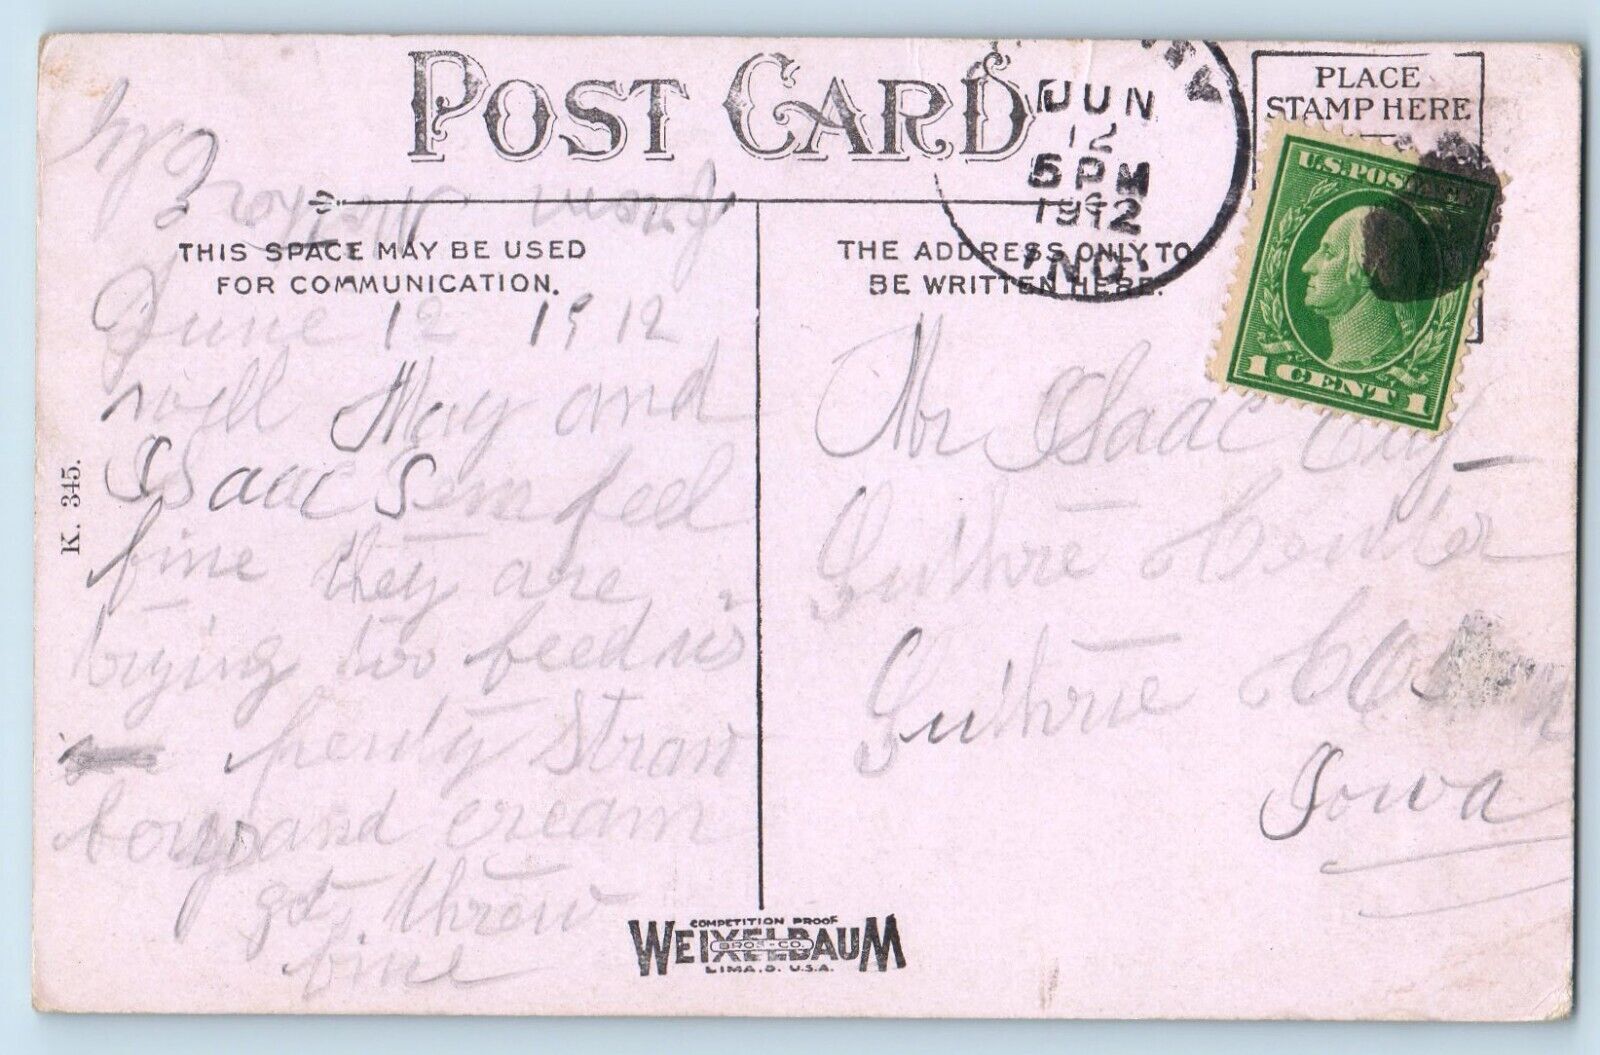 POST CARD
THIS SPACE MAY BE USED
FOR COMMUNICATION.
THE ADDRESS ONLY TO
BE WRITTEN HERE.
PLACE
STAMP HERE
JUN
12
5 PM
1912
IND.
U.S. POSTAGE
1 CENT 1
June 12 1912
well May and
Isaac Sem feel
fine they are
trying too feed us
penty Straw
and cream
got threw
fine
from
Mr Isaac
Guthre Center
Guthrie
Iowa
K. 345.
COMPETITION PROOF
WEIXELBAUM
BROS. CO.
LIMA, O. U.S.A.